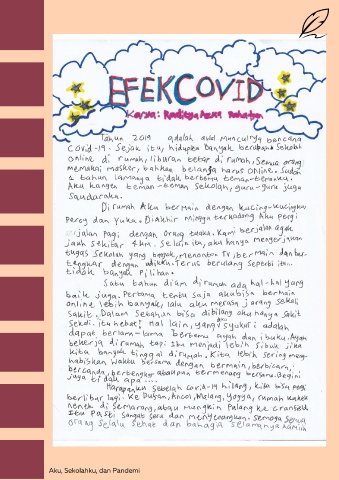 EFEKCOVID
Karya: Raditya Azka
Tahun 2019 adalah awal munculnya bencana
Covid-19. Sejak itu, hidupku Banyak berubah. Sekolah
online di rumah, liburan besar di rumah, Semua orang
memakai masker, bahkan belanja harus Online. Sudah
2 tahun lamanya tidak bertemu teman-temanku.
Aku kangen teman-teman sekolah, guru-guru juga
saudaraku.
Dirumah Aku bermain dengan kucing-kucingku
Percy dan Yuka. Diakhir Minggu terkadang Aku pergi
berjalan Pagi dengan orang tuaku. Kami berjalan agak
jauh sekitar 4km. Selain itu, aku hanya mengerjakan
tugas sekolah yang banyak, menonton TV, bermain dan ber-
tengkar dengan adikku. Terus berulang seperti itu...
tidak banyak Pilihan.
Satu tahun diam dirumah ada hal-hal yang
baik juga. Pertama tentu saja aku bisa bermain
online lebih banyak, lalu aku merasa jarang sekali
sakit. Dalam Setahun bisa dibilang aku hanya sakit
sekali. itu hebat! Hal lain yang aku syukuri adalah
dapat berlama-lama bersama ayah dan ibuku. Ayah
bekerja dirumah, tapi Ibu menjadi lebih sibuk jika
kita banyak tinggal dirumah. Kita lebih sering meng-
habiskan waktu bersama dengan bermain, berbicara,
bercanda, bertengkar ataupun termenung bersama. Begini
juga tidak apa ....
Harapanku Setelah covid-19 hilang, kita bisa pergi
berlibur lagi. Ke Dufan, Ancol, Malang, Yogya, rumah kakek
nenek di Semarang, atau mungkin Pulang ke
Itu Pasti sangat seru dan menyenangkan. Semoga semua
orang selalu sehat dan bahagia selamanya
Aku, Sekolahku, dan Pandemi